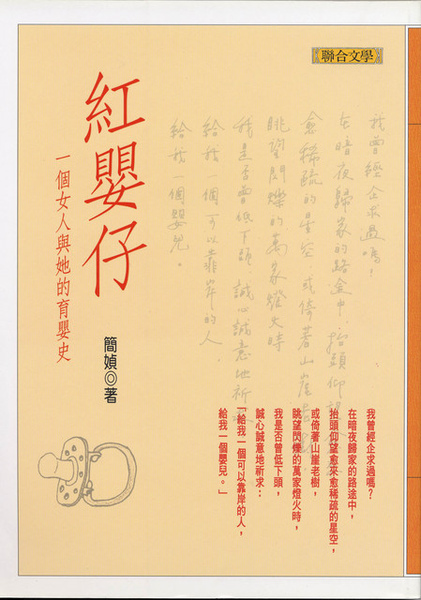 聯合文學
紅嬰仔
一個女人與她的育嬰史
簡媜◎著
我曾經企求過嗎?
在暗夜歸家的路途中,
抬頭仰望愈來愈稀疏的星空,
或倚著山崖老樹,
眺望閃爍的萬家燈火時,
我是否曾低下頭,
誠心誠意地祈求:
「給我一個可以靠岸的人,
給我一個嬰兒。」
我曾經企求過嗎?
在暗夜歸家的路途中,抬頭仰望
愈稀疏的星空,或倚著山崖
眺望閃爍的萬家燈火時
我是否曾低下頭,誠心誠意地祈
給我一個可以靠岸的人,
給我一個嬰兒。